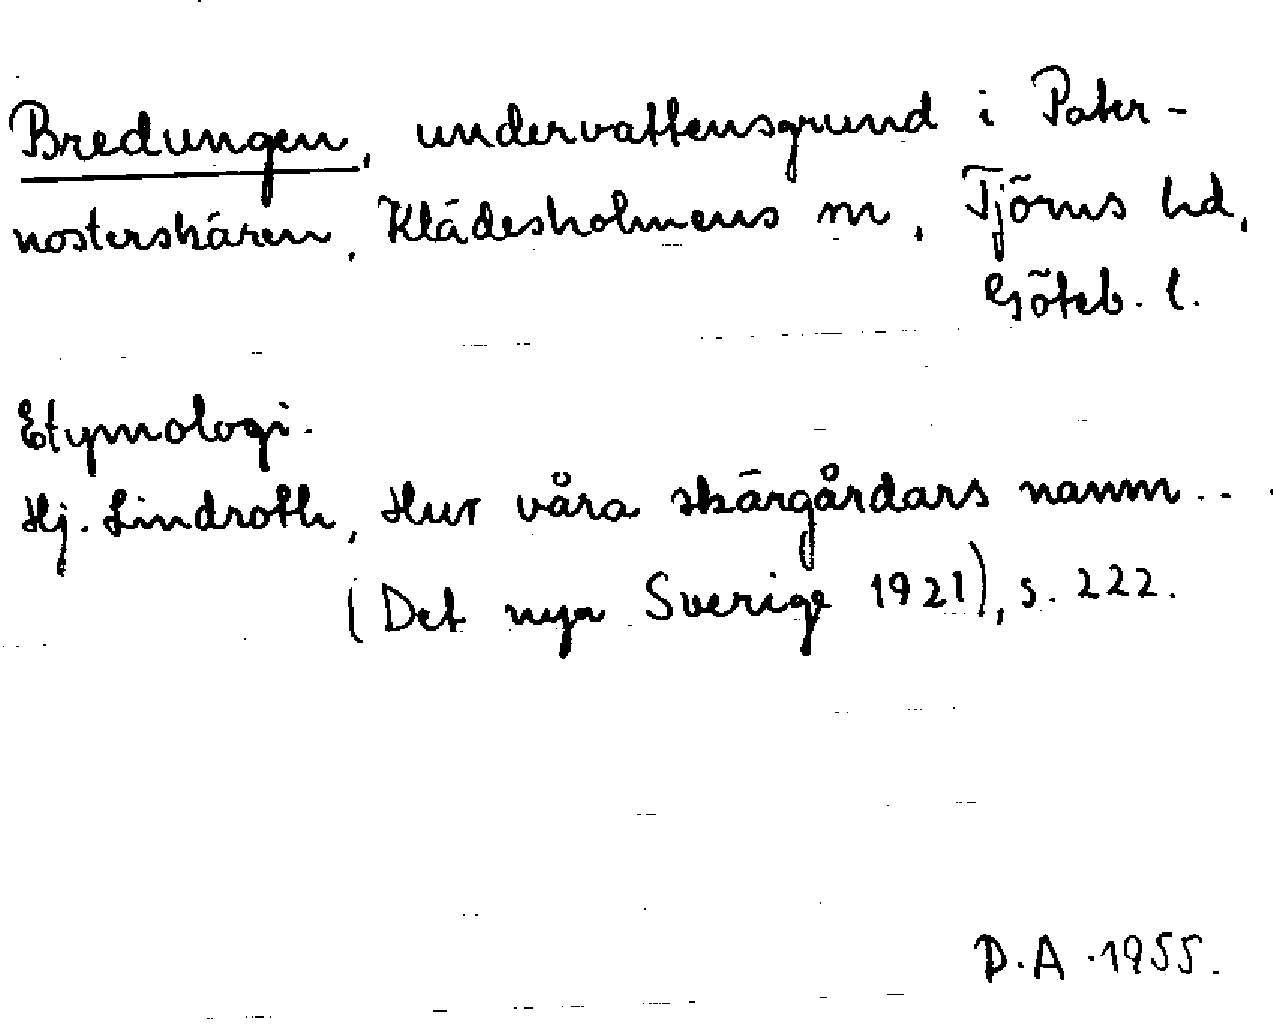 Bredungen, undervattensgrund i Pater-
nosterskären, Klädesholmens m, Tjörns hd,
Göteb. l.
Etymologi.
Hj. Lindroth, Hur våra skärgårdars namn...
(Det nya Sverige 1921), s. 222.
D.A. 1955.